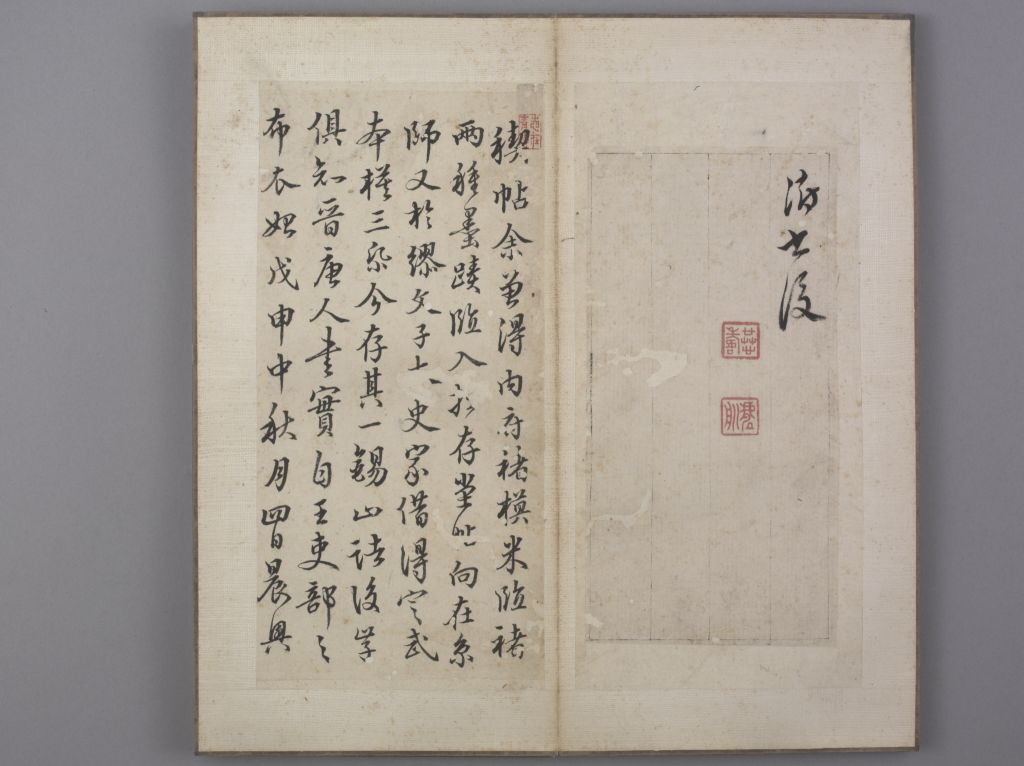 後
禊帖余曾得内府褚模米臨褚
兩種墨蹟臨入存堂帖向在京
師又於繆文子太史家借得定武
本模三今存其一錫山諸後学
俱知晉唐人書實自王吏部之
布衣始戊申中秋月四日晨興